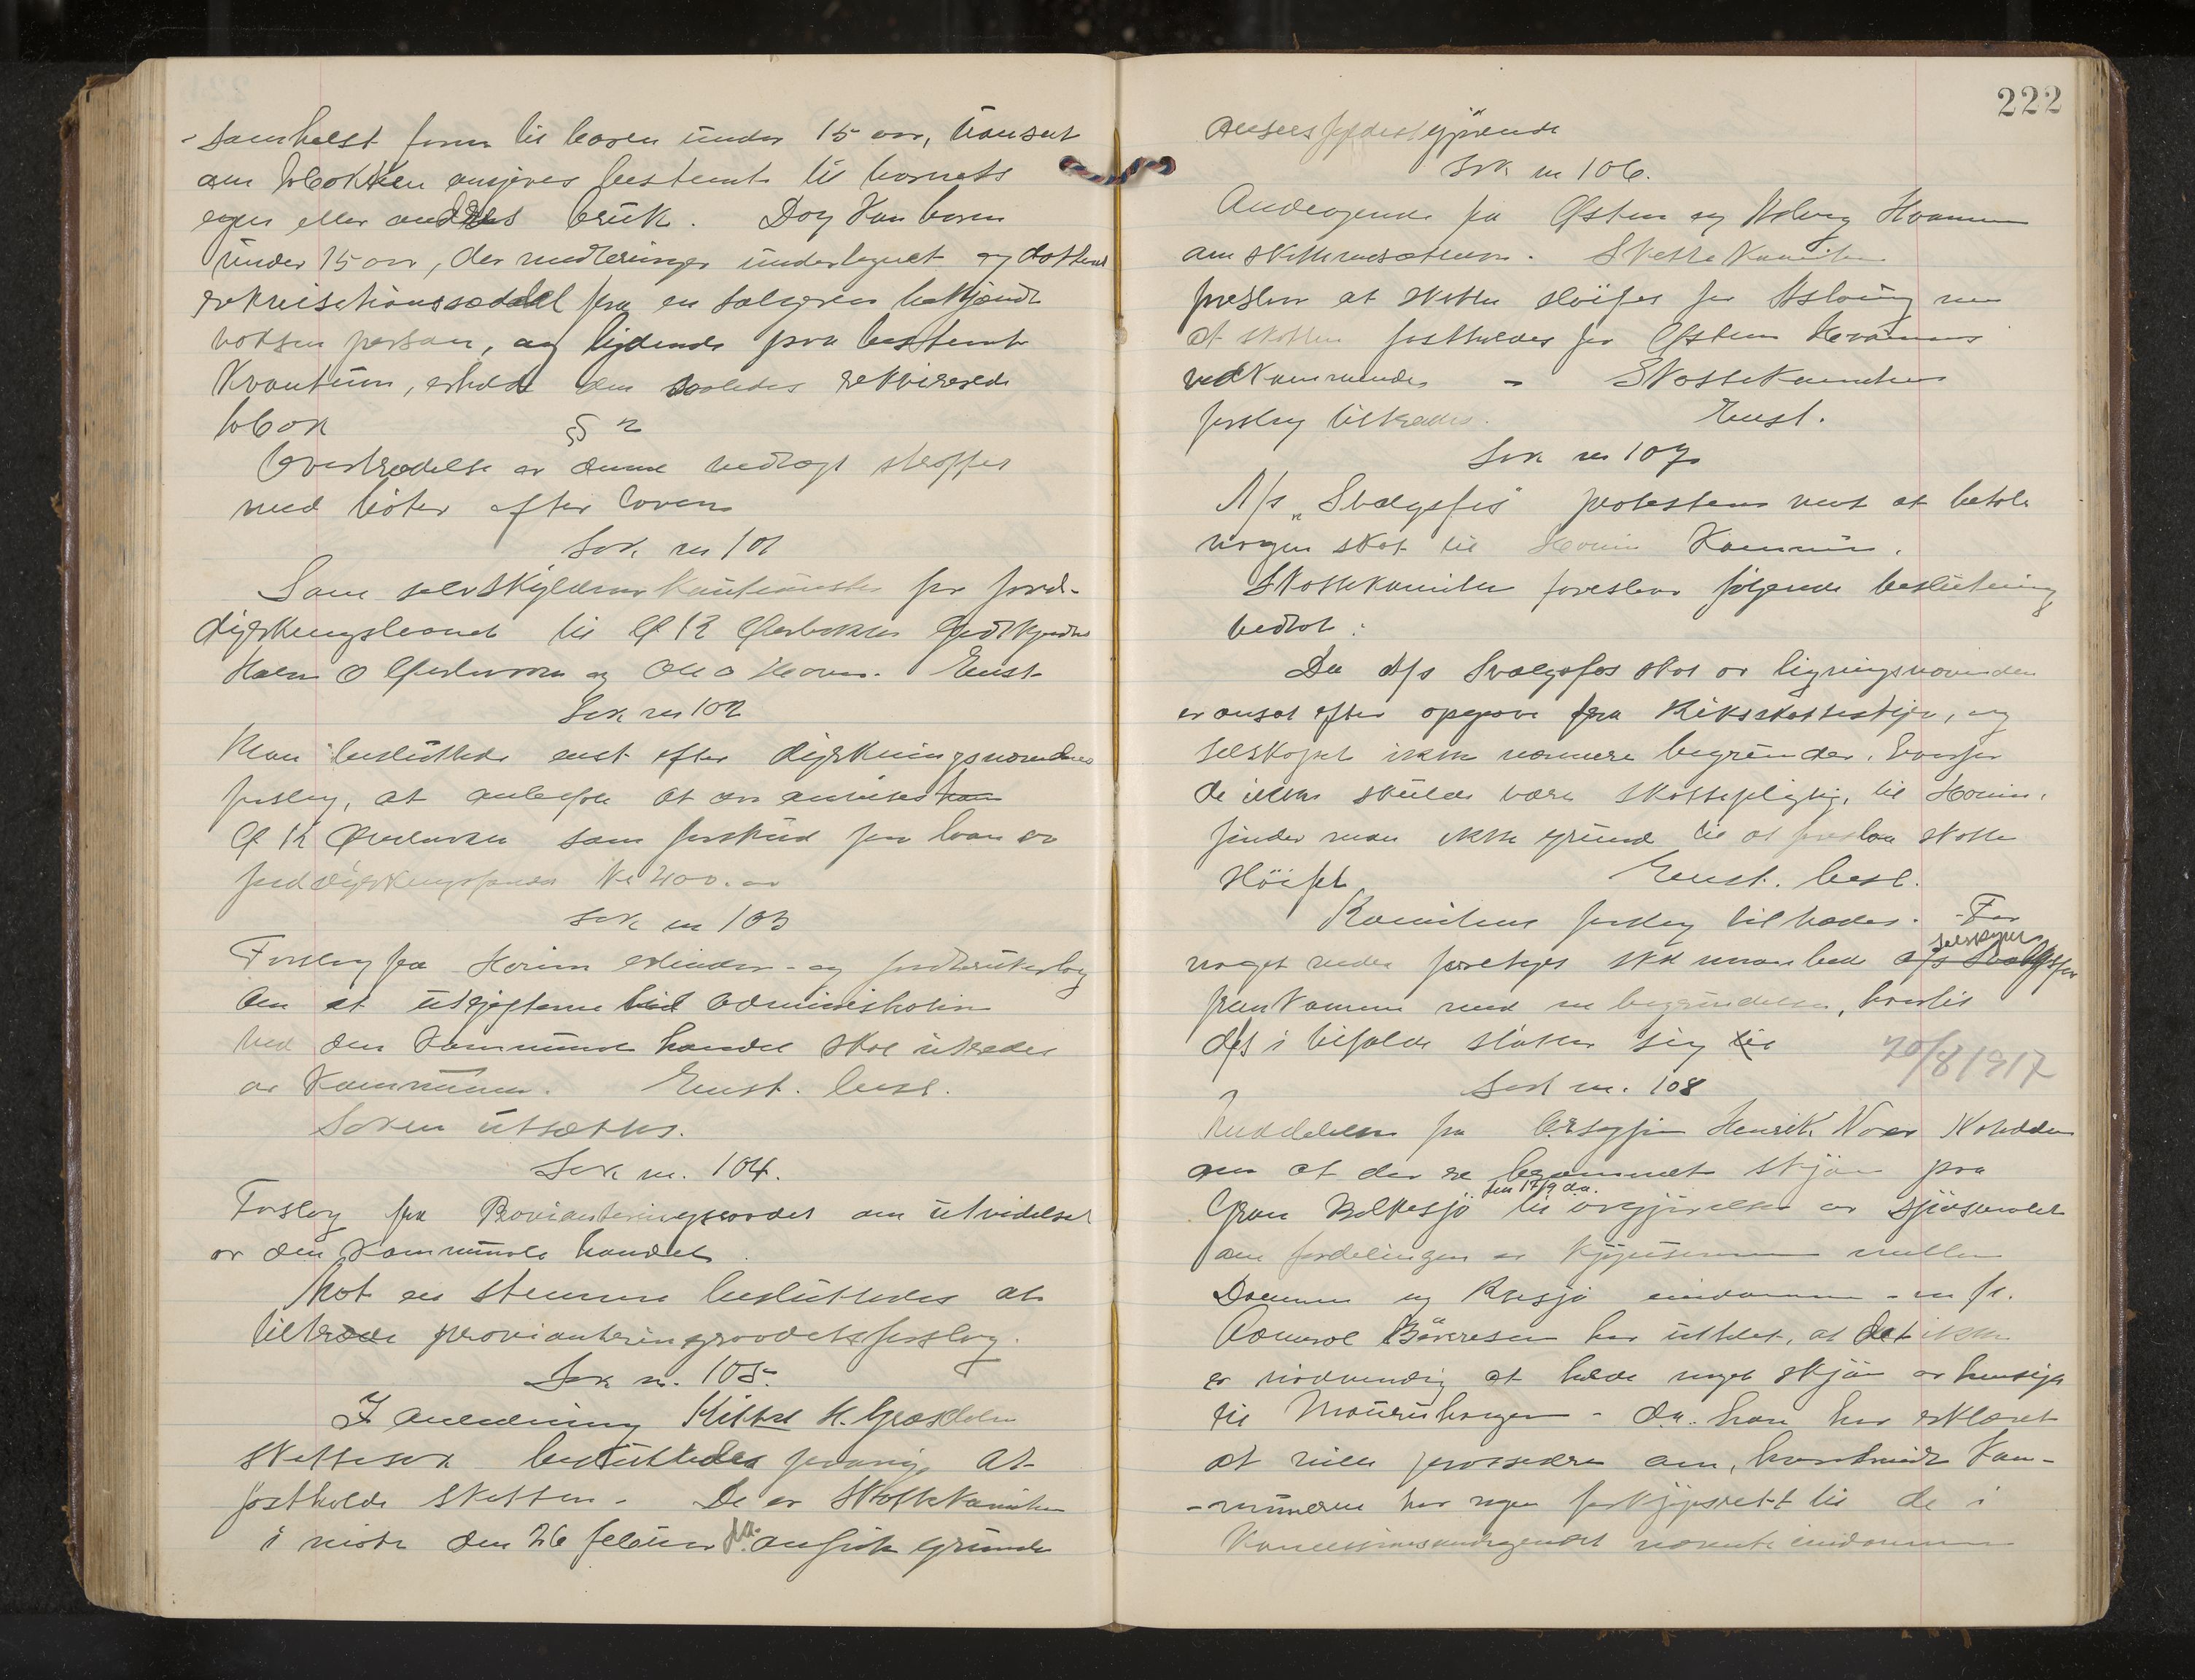 -somhelst form til barn under 15 aar, uanset
om tobakken angives bestemt til barnets
egen eller andres bruk. Dog kan barn
under 15 aar, der medbringer underteget og datteret
rekvisitionsseddel fra en sælgeren bekjendt
voksen person, og lydende paa bestemt
kvantum, erholde den saaledes rekvirerede
tobak § 2
Overtrædelse av denne vedtægt straffes
med bøter efter loven
Sak nr 101
Som selvskyldnerkautionister for jord-
dyrkningslaanet til O K godkjendtes
Halvor O og Ole O Hovin. Enst.
Sak nr 102
Man besluttedes enst efter dyrkningsnævndens
forslag, at anbefale at der anvises ham
O K som forskud paa laan av
jorddyrkningsfondet Kr 400.00
Sak nr 103
Forslag fra Hovin arbeider- og jordbrukerlag
om at utgifterne ved administration
ved den kommunale handel skal utredes
av kommunen. Enst. besl.
Saken utsættes.
Sak nr. 104.
Forslag fra Provianteringsraadet om utvidelse
av den kommunale handel
Mot en stemme besluttedes at
tiltræde provianteringsraadets forslag.
Sak nr. 105.
I anledning Kittel K. Graasdalen
skattesak besluttedes at
fastholde skatten. De av Skattekomiteen
i møte den 26 februar d.a. anførte grunde
222
ansees fyldestgjørende
Sak nr 106.
Andragende fra Østen og Aslaug Hvammen
om skattenedsættelse. Skattekomiteen
foreslaar at skatten sløifes for Aslaug men
at skatten fastholdes for Østen Hvammens
vedkommende – Skattekomiteens
forslag tiltrædes. Enst.
Sak nr 107
A/s „Svælgfos" protesterer mot at betale
nogen skat til Hovin Kommune.
Skattekomiteen foreslaar følgende beslutning
vedtat:
Da A/s Svælgfos skat av ligningsnævnden
er ansat efter opgave fra Riksskattestyre, og
selskapet ikke nærmere begrunder, hvorfor
de ikke skulde være skattepligtig til Hovin,
finder man ikke grund til at foreslaa skatten
sløifet Enst. besl.
Komiteens forslag tiltrædes. - Før
noget videre foretages skal man bede selskapet
fremkomme med en begrundelse, hvortil
det i tilfælde støtter sig til 20/8 1917
Sak nr. 108
Meddelelse fra O.R.sagfører Henrik Notodden
om at der er berammet skjøn paa
Gran Bolkesjø den 17/9 d.a. til avgjørelse av spørsmaalet
om fordelingen av kjøpesummen mellem
og eiendomme - m fl.
Børresen har uttalt, at det ikke
er nødvendig at holde noget skjøn av hensyn
til - d.a. han har erklæret
at ville procedere om, hvorvidt kom-
-munerne har nogen forkjøpsrett til de i
Koncessionsandragendet nævnte eiendomme